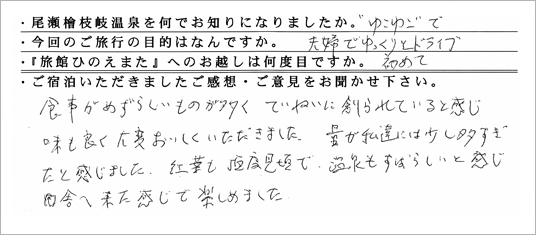 ・尾瀬檜枝岐温泉を何でお知りになりましたか。ゆこゆこで
・今回のご旅行の目的はなんですか。 夫婦でゆっくりとドライブ
・『旅館ひのえまた』へのお越しは何度目ですか。 初めて
・ご宿泊いただきましたご感想・ご意見をお聞かせ下さい。
食事がめずらしいものが多く ていねいに創られていると感じ
味も良く 大変おいしくいただきました。 量が私達には少し多すぎ
たと感じました。 紅葉も 適度見頃で、温泉もすばらしいと感じ
田舎へ来た感じで楽しめました。